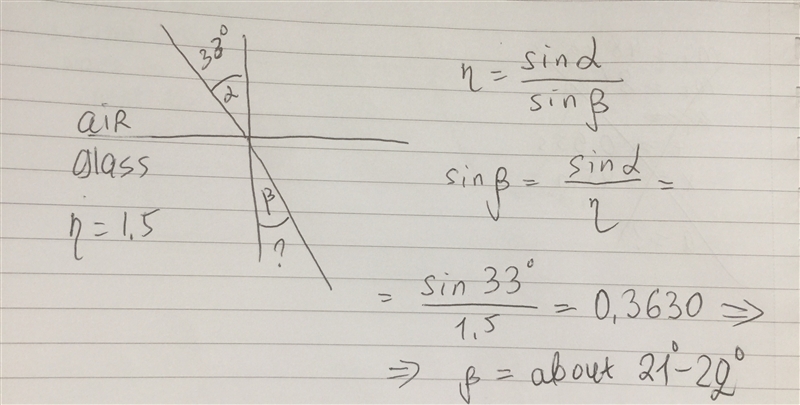 33°
α
air
glass
η = 1,5
β
?
η = sinα / sinβ
sinβ = sinα / η =
= sin 33° / 1,5 = 0,3630 ⇒
⇒ β = about 21° - 22°